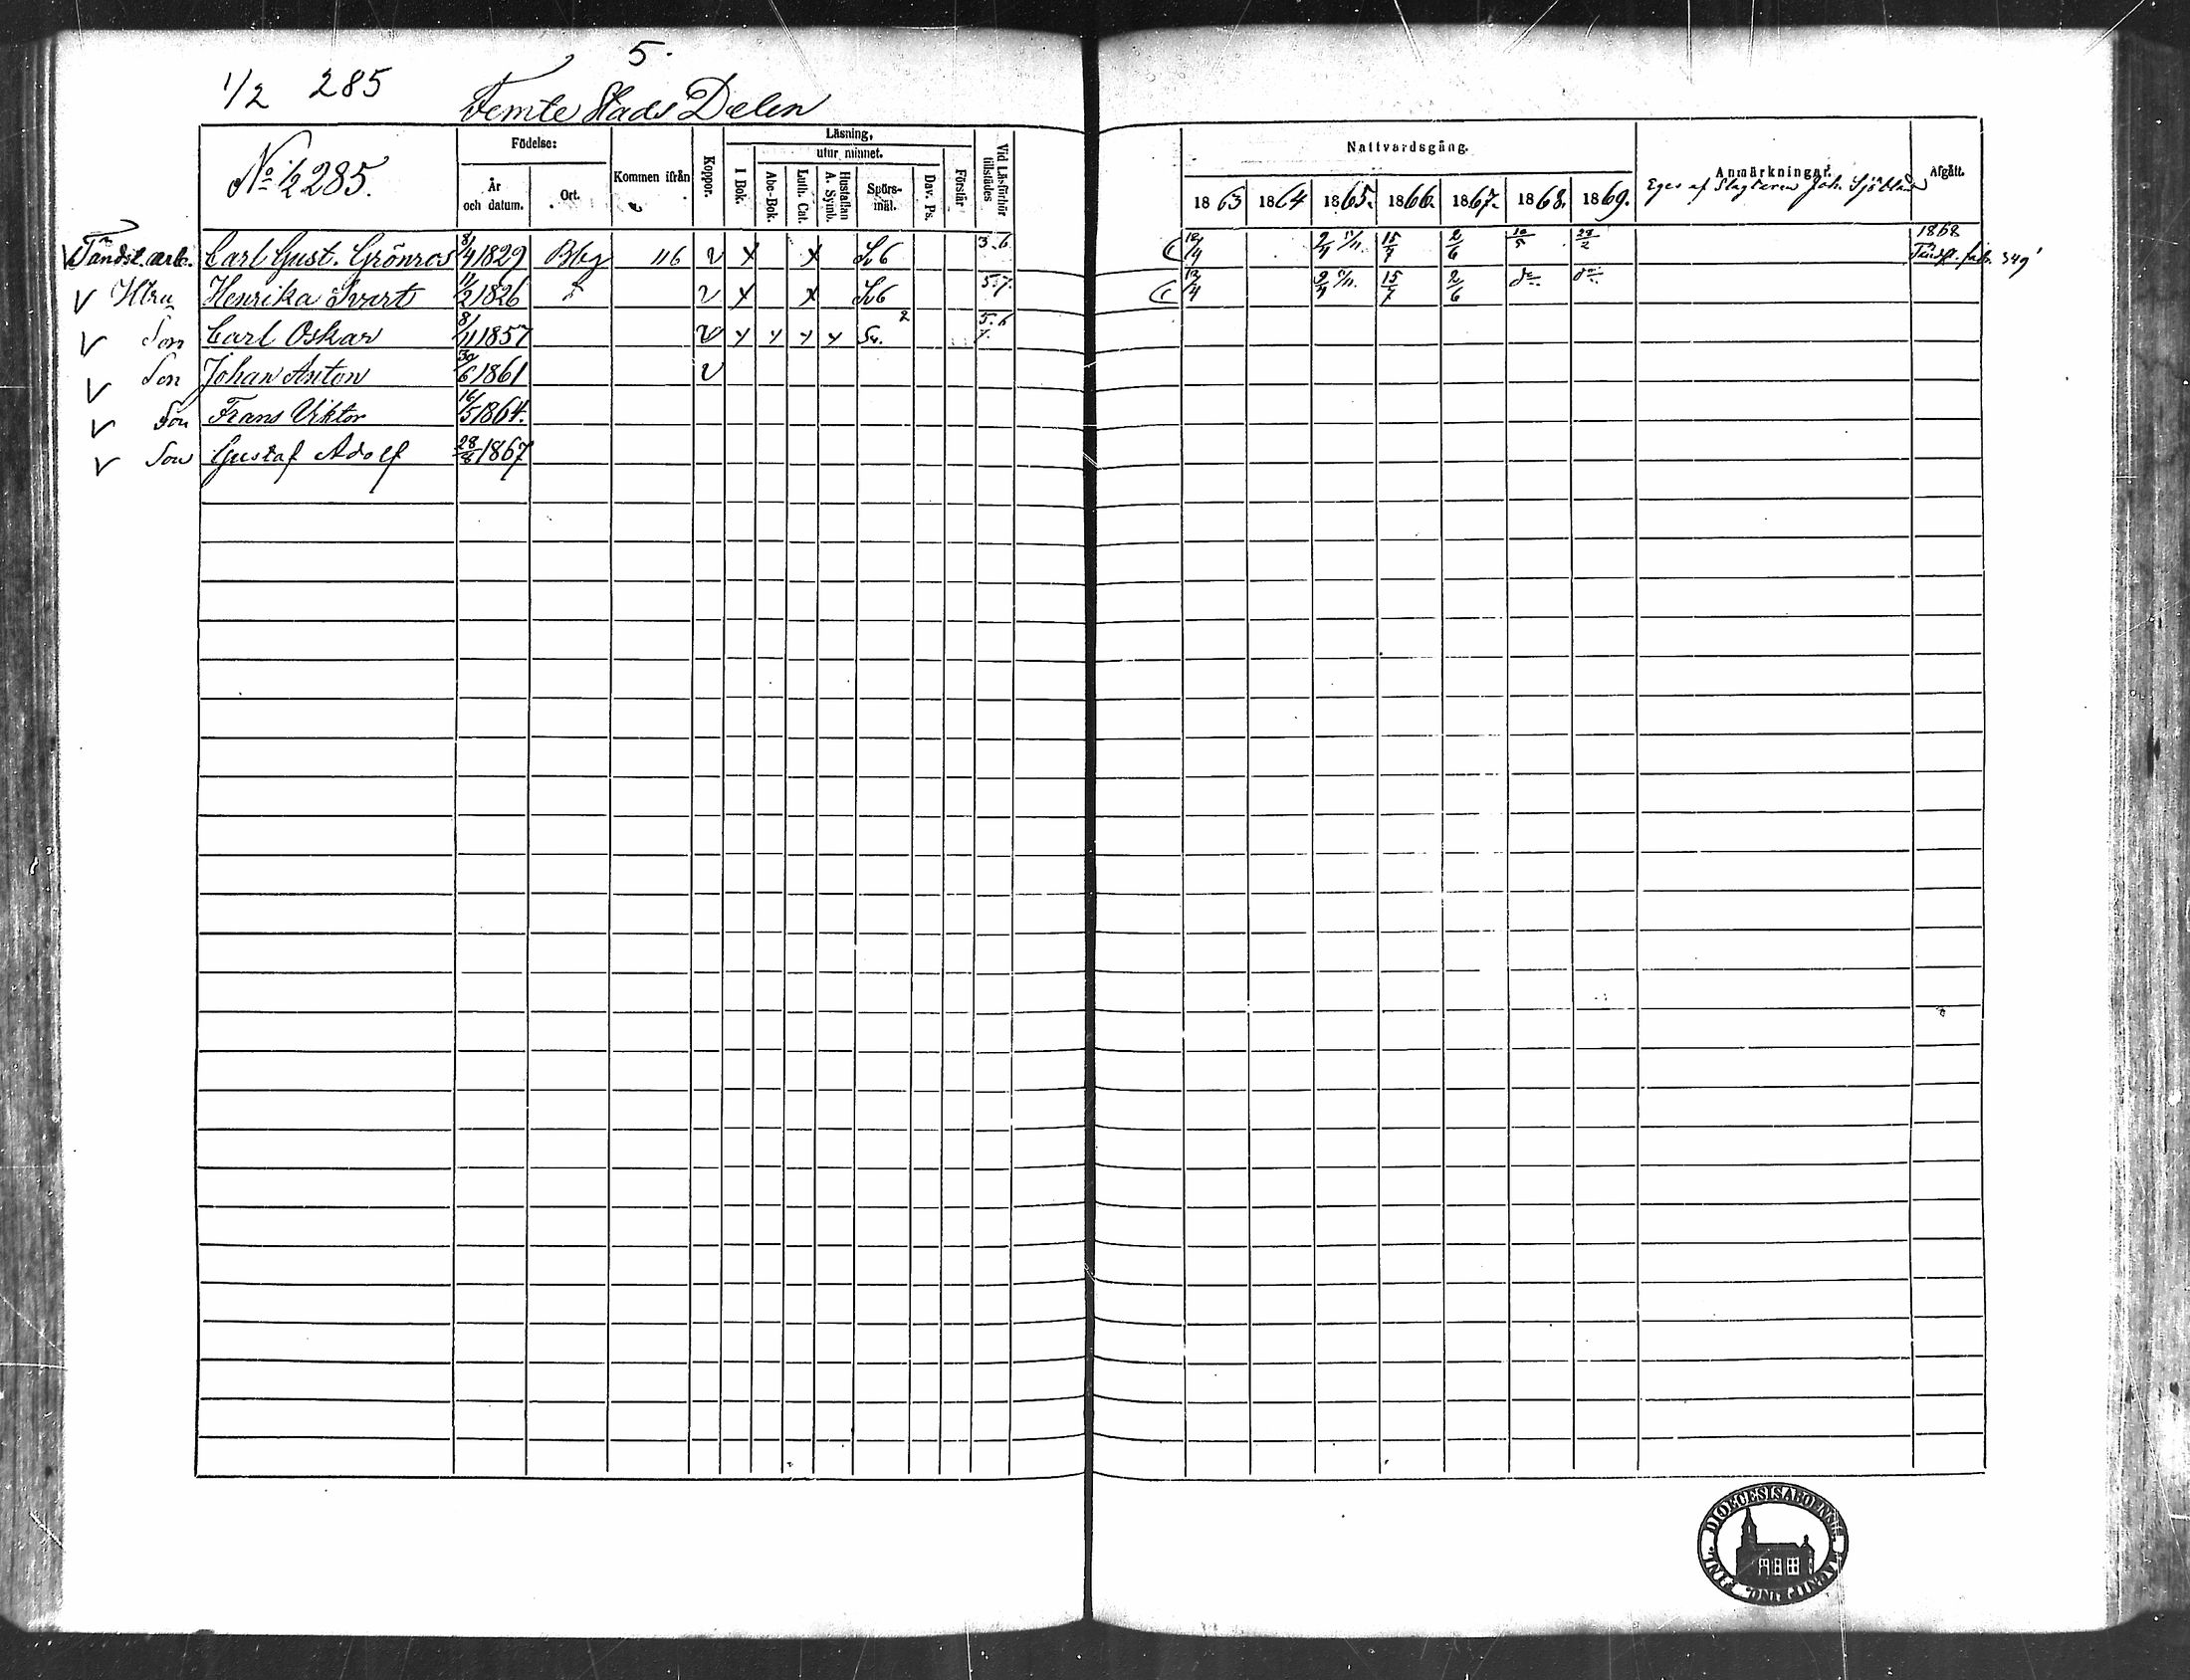 5.
1/2 285 Femte Stads Delen
No 1/2 285.
Födelse: År och datum. Ort.
Kommen ifrån
Koppor.
Läsning, utur minnet.
I Bok. Abc-Bok. Luth. Cat. Hustaflan A. Symb. Spörs-mål. Dav. Ps. Förstår
Vid Läsförhör tillstädes
Nattvardsgång.
1863 1864 1865. 1866. 1867. 1868. 1869.
Anmärkningar.
Eges af Slagtaren Joh. Sjöblom
Afgått.
Tändst. arb. Carl Gust. Grönroos 8/4 1829 Bbg 116 v x x Sv 6 3.6 12/4 2/4 15/7 2/6 10/5 28/2 1868 Tändst. fab. 349
Htru Henrika Svart 11/2 1826 v x x Sv 6 5.7. 12/4 2/4 15/7 2/6 do do
Son Carl Oskar 8/11 1857 v Sv. 2 5.6 7.
Son Johan Anton 30/6 1861 v
Son Frans Viktor 16/5 1864.
Son Gustaf Adolf 28/8 1867
DIOECESIS ABOENSIS